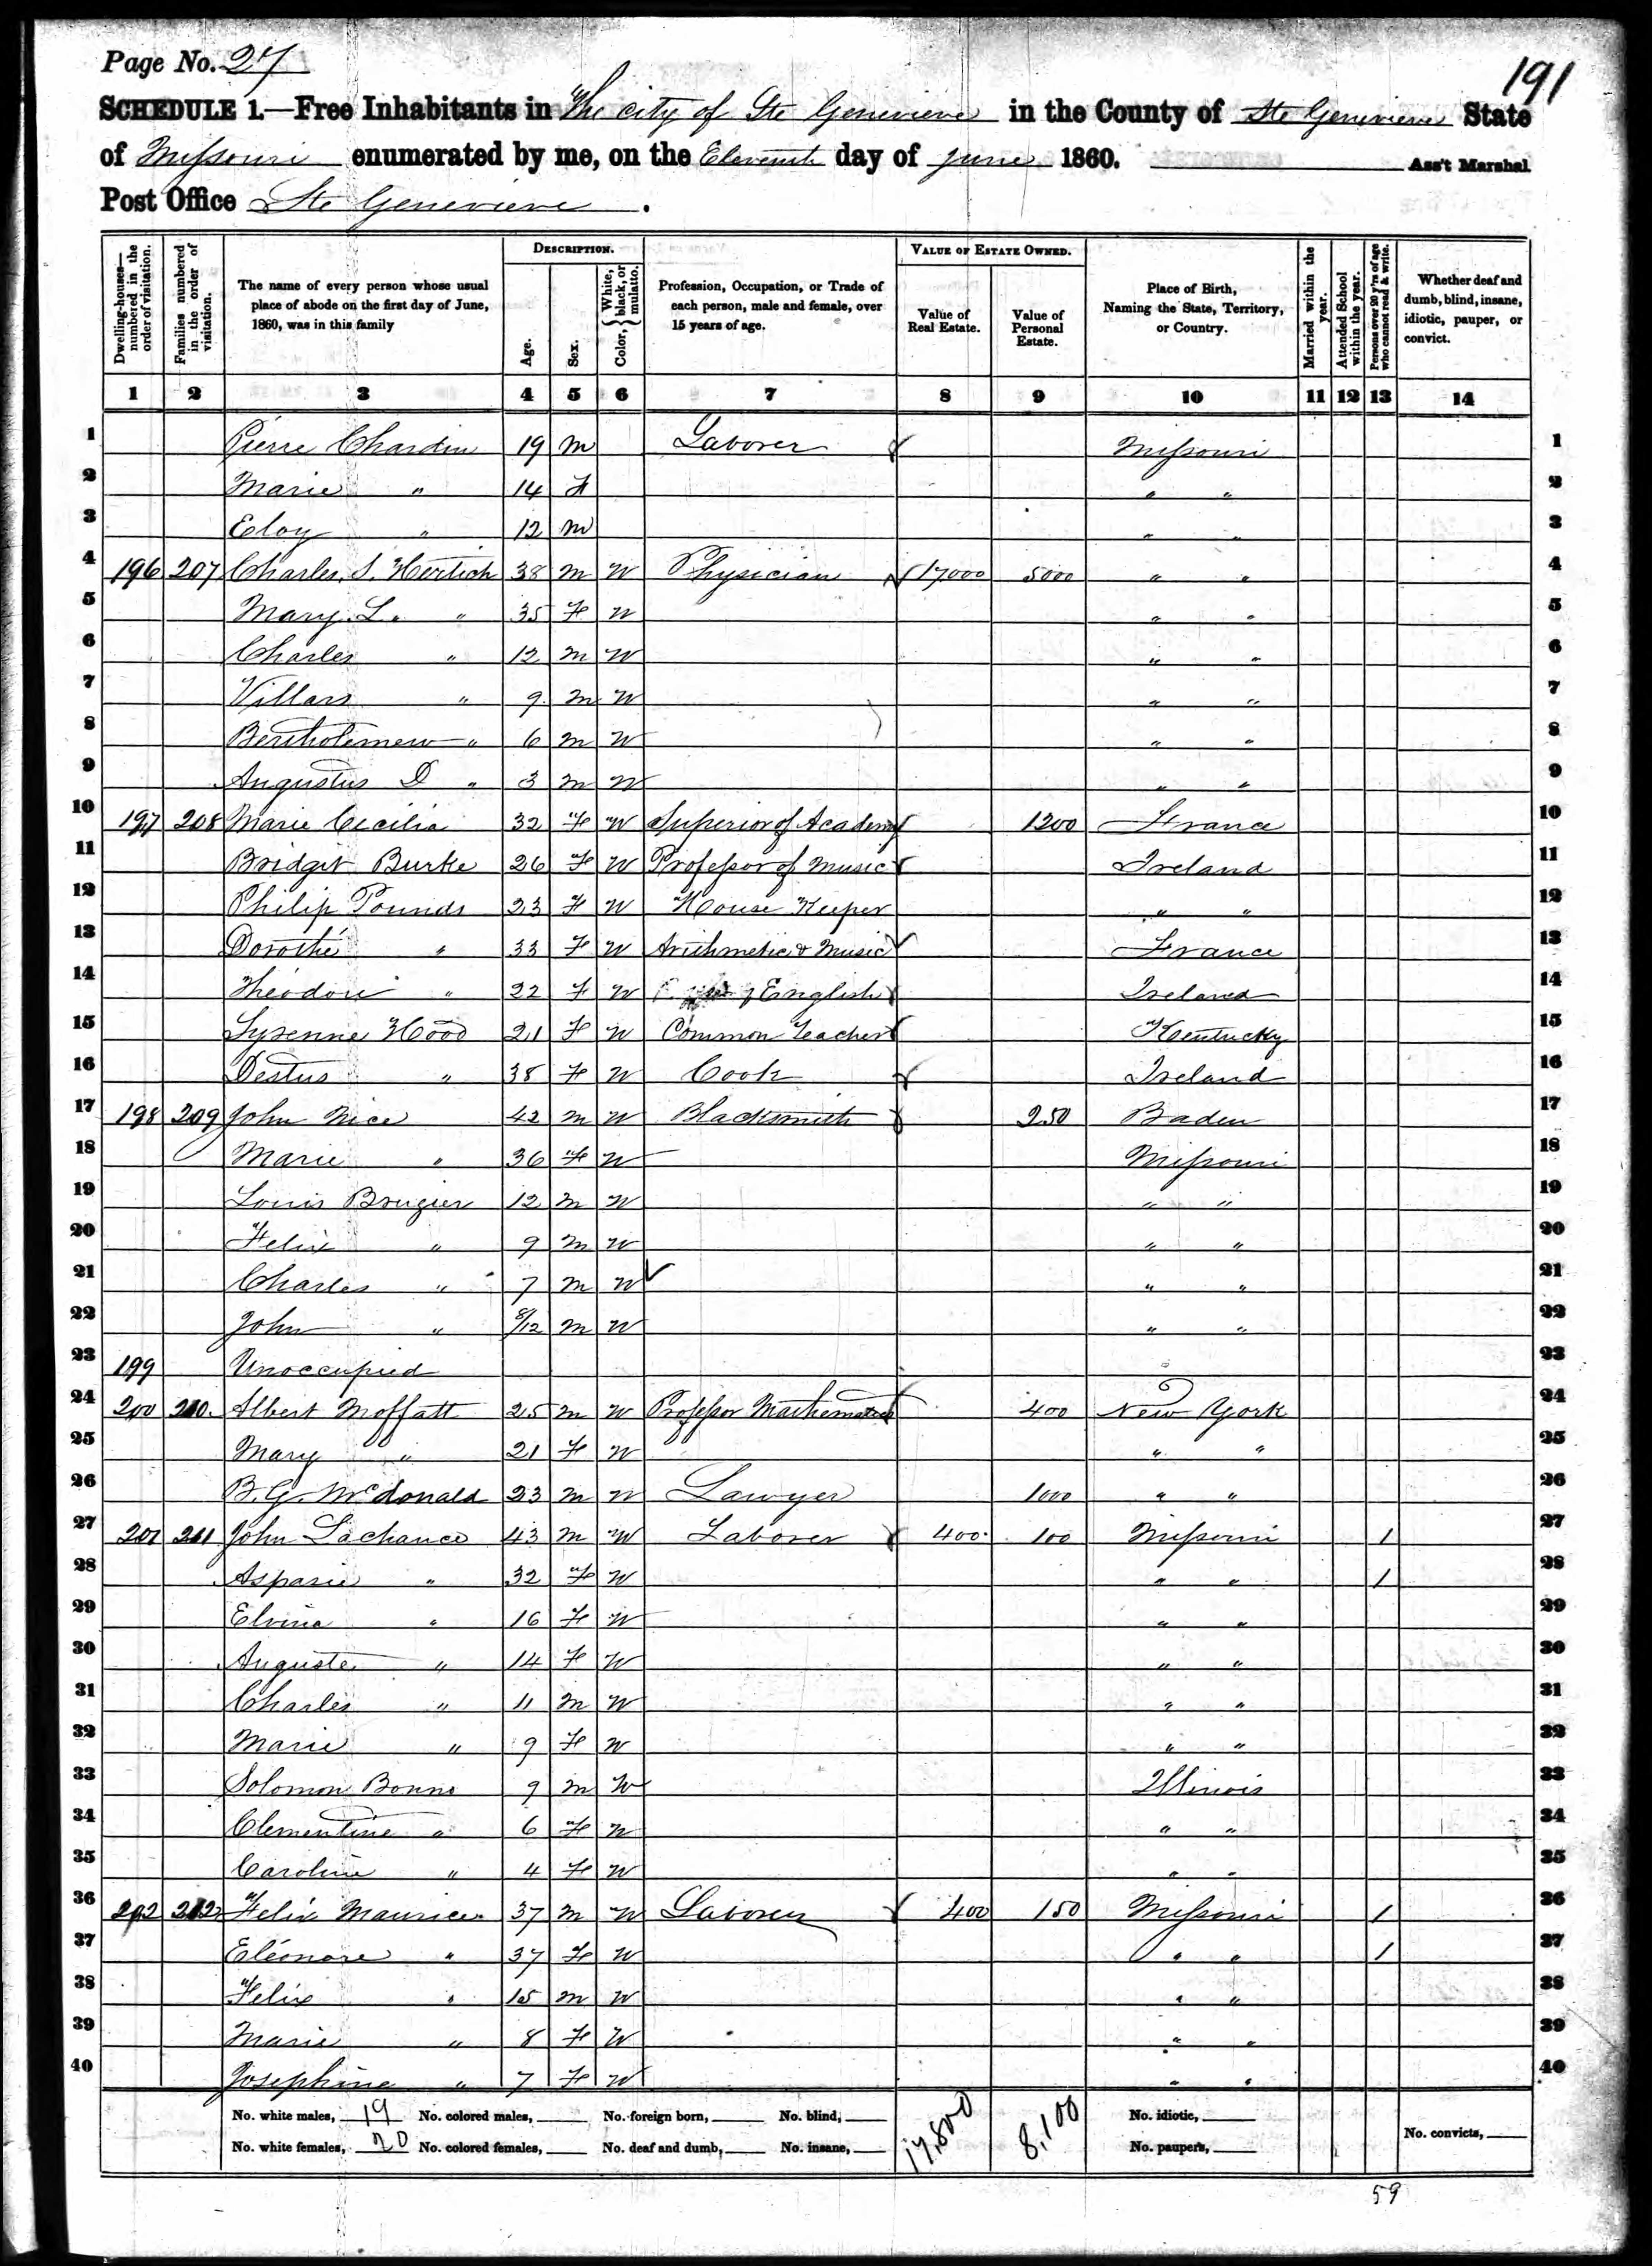 Page No. 27
191
SCHEDULE 1.—Free Inhabitants in The city of Ste Genevieve in the County of Ste Genevieve State
of Missouri enumerated by me, on the Eleventh day of June 1860. Ass't Marshal
Post Office Ste Genevieve.
Dwelling-houses—numbered in the order of visitation. Families numbered in the order of visitation. The name of every person whose usual place of abode on the first day of June, 1860, was in this family DESCRIPTION. Age. Sex. Color, { White, black, or mulatto. Profession, Occupation, or Trade of each person, male and female, over 15 years of age. VALUE OF ESTATE OWNED. Value of Real Estate. Value of Personal Estate. Place of Birth, Naming the State, Territory, or Country. Married within the year. Attended School within the year. Persons over 20 y'rs of age who cannot read & write. Whether deaf and dumb, blind, insane, idiotic, pauper, or convict.
1 2 3 4 5 6 7 8 9 10 11 12 13 14
1 Pierre Chardin 19 m Laborer Missouri 1
2 Marie " 14 F " " 2
3 Eloy " 12 m " " 3
4 196 207 Charles S. Hertich 38 m W Physician 17000 5000 " " 4
5 Mary L. " 35 F W " " 5
6 Charles " 12 m W " " 6
7 Villars " 9 m W " " 7
8 Bertholemew " 6 m W " " 8
9 Augustus D " 3 m W " " 9
10 197 208 Marie Cecilia 32 F W Superior of Academy 1200 France 10
11 Bridgit Burke 26 F W Professor of Music Ireland 11
12 Philip Pounds 23 F W House Keeper " " 12
13 Dorothé " 33 F W Arithmetic & Music France 13
14 Théodore " 22 F W English Ireland 14
15 Lyrenne Hood 21 F W Common Teacher Kentucky 15
16 Destus " 38 F W Cook Ireland 16
17 198 209 John Nice 42 m W Blacksmith 250 Baden 17
18 Marie " 36 F W Missouri 18
19 Louis Brugier 12 m W " " 19
20 Felix " 9 m W " " 20
21 Charles " 7 m W " " 21
22 John " 8/12 m W " " 22
23 199 Unoccupied 23
24 200 210 Albert Moffatt 25 m W Professor Mathematics 400 New York 24
25 Mary " 21 F W " " 25
26 B. G. McDonald 23 m W Lawyer 1000 " " 26
27 201 211 John Lachance 43 m W Laborer 400 100 Missouri 1 27
28 Aspasie " 32 F W " " 1 28
29 Elvina " 16 F W " " 29
30 Auguste " 14 F W " " 30
31 Charles " 11 m W " " 31
32 Marie " 9 F W " " 32
33 Solomon Bonne 9 m W Illinois 33
34 Clementine " 6 F W " " 34
35 Caroline " 4 F W " " 35
36 202 212 Felix Maurice 37 m W Laborer 400 150 Missouri 1 36
37 Eléonore " 37 F W " " 1 37
38 Felix " 15 m W " " 38
39 Marie " 8 F W " " 39
40 Josephine " 7 F W " " 40
No. white males, 19 No. colored males, No. foreign born, No. blind, 17,800 8,100 No. idiotic,
No. white females, 20 No. colored females, No. deaf and dumb, No. insane, No. paupers, No. convicts,
59